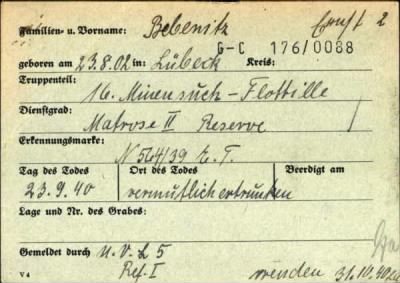 Familien- u. Vorname: Bebenitz Ernst 2
G-C 176/0088
geboren am 23.8.02 in: Lübeck Kreis:
Truppenteil: 16. Minensuch-Flottille
Dienstgrad: Matrose II Reserve
Erkennungsmarke: N 564/39 E.T.
Tag des Todes Ort des Todes Beerdigt am
23.9.40 vermutlich ertrunken
Lage und Nr. des Grabes:
Gemeldet durch U.V.L 5
Ref. I
V 4 31.10.40